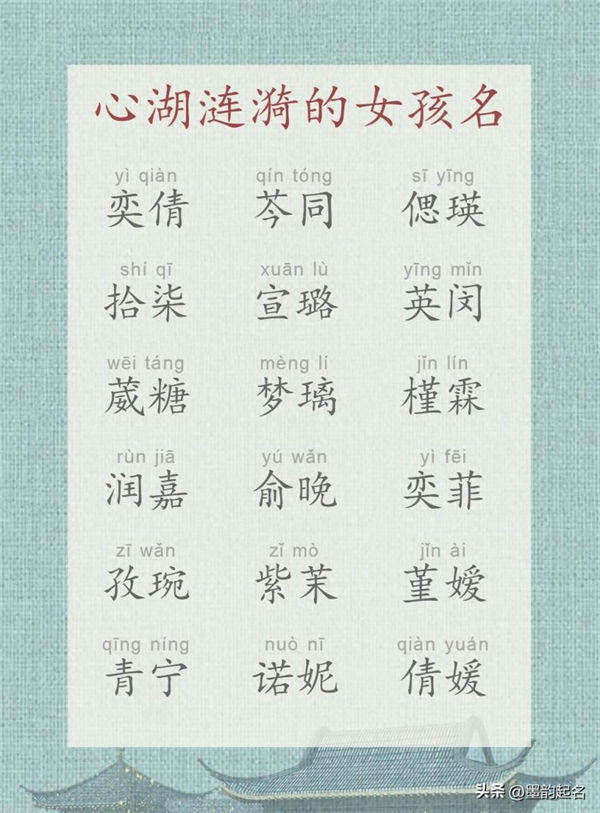 心湖涟漪的女孩名
yì qiàn qín tóng sī yīng
奕倩 芩同 偲瑛
shí qī xuān lù yīng mǐn
拾柒 宣璐 英闵
wēi táng mèng lí jǐn lín
葳糖 梦璃 槿霖
rùn jiā yú wǎn yì fēi
润嘉 俞晚 奕菲
zī wǎn zǐ mò jǐn ài
孜琬 紫茉 堇嫒
qīng níng nuò nī qiàn yuán
青宁 诺妮 倩媛
头条 @墨韵起名